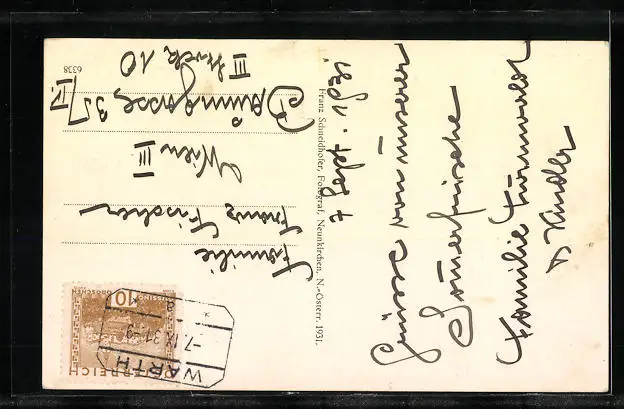 7. Sept. 1931
Grüsse von unserer
Somerfrische
Familie
D Kindler
Familie
Franz Fischer
Wien III
35/IV
III Stock 10
Franz Schneidhofer, Fotograf, Neunkirchen, N.-Österr. 1931.
6338
WARTH
-7.IX.31-9
* a *
10
GROSCHEN
ÖSTERREICH